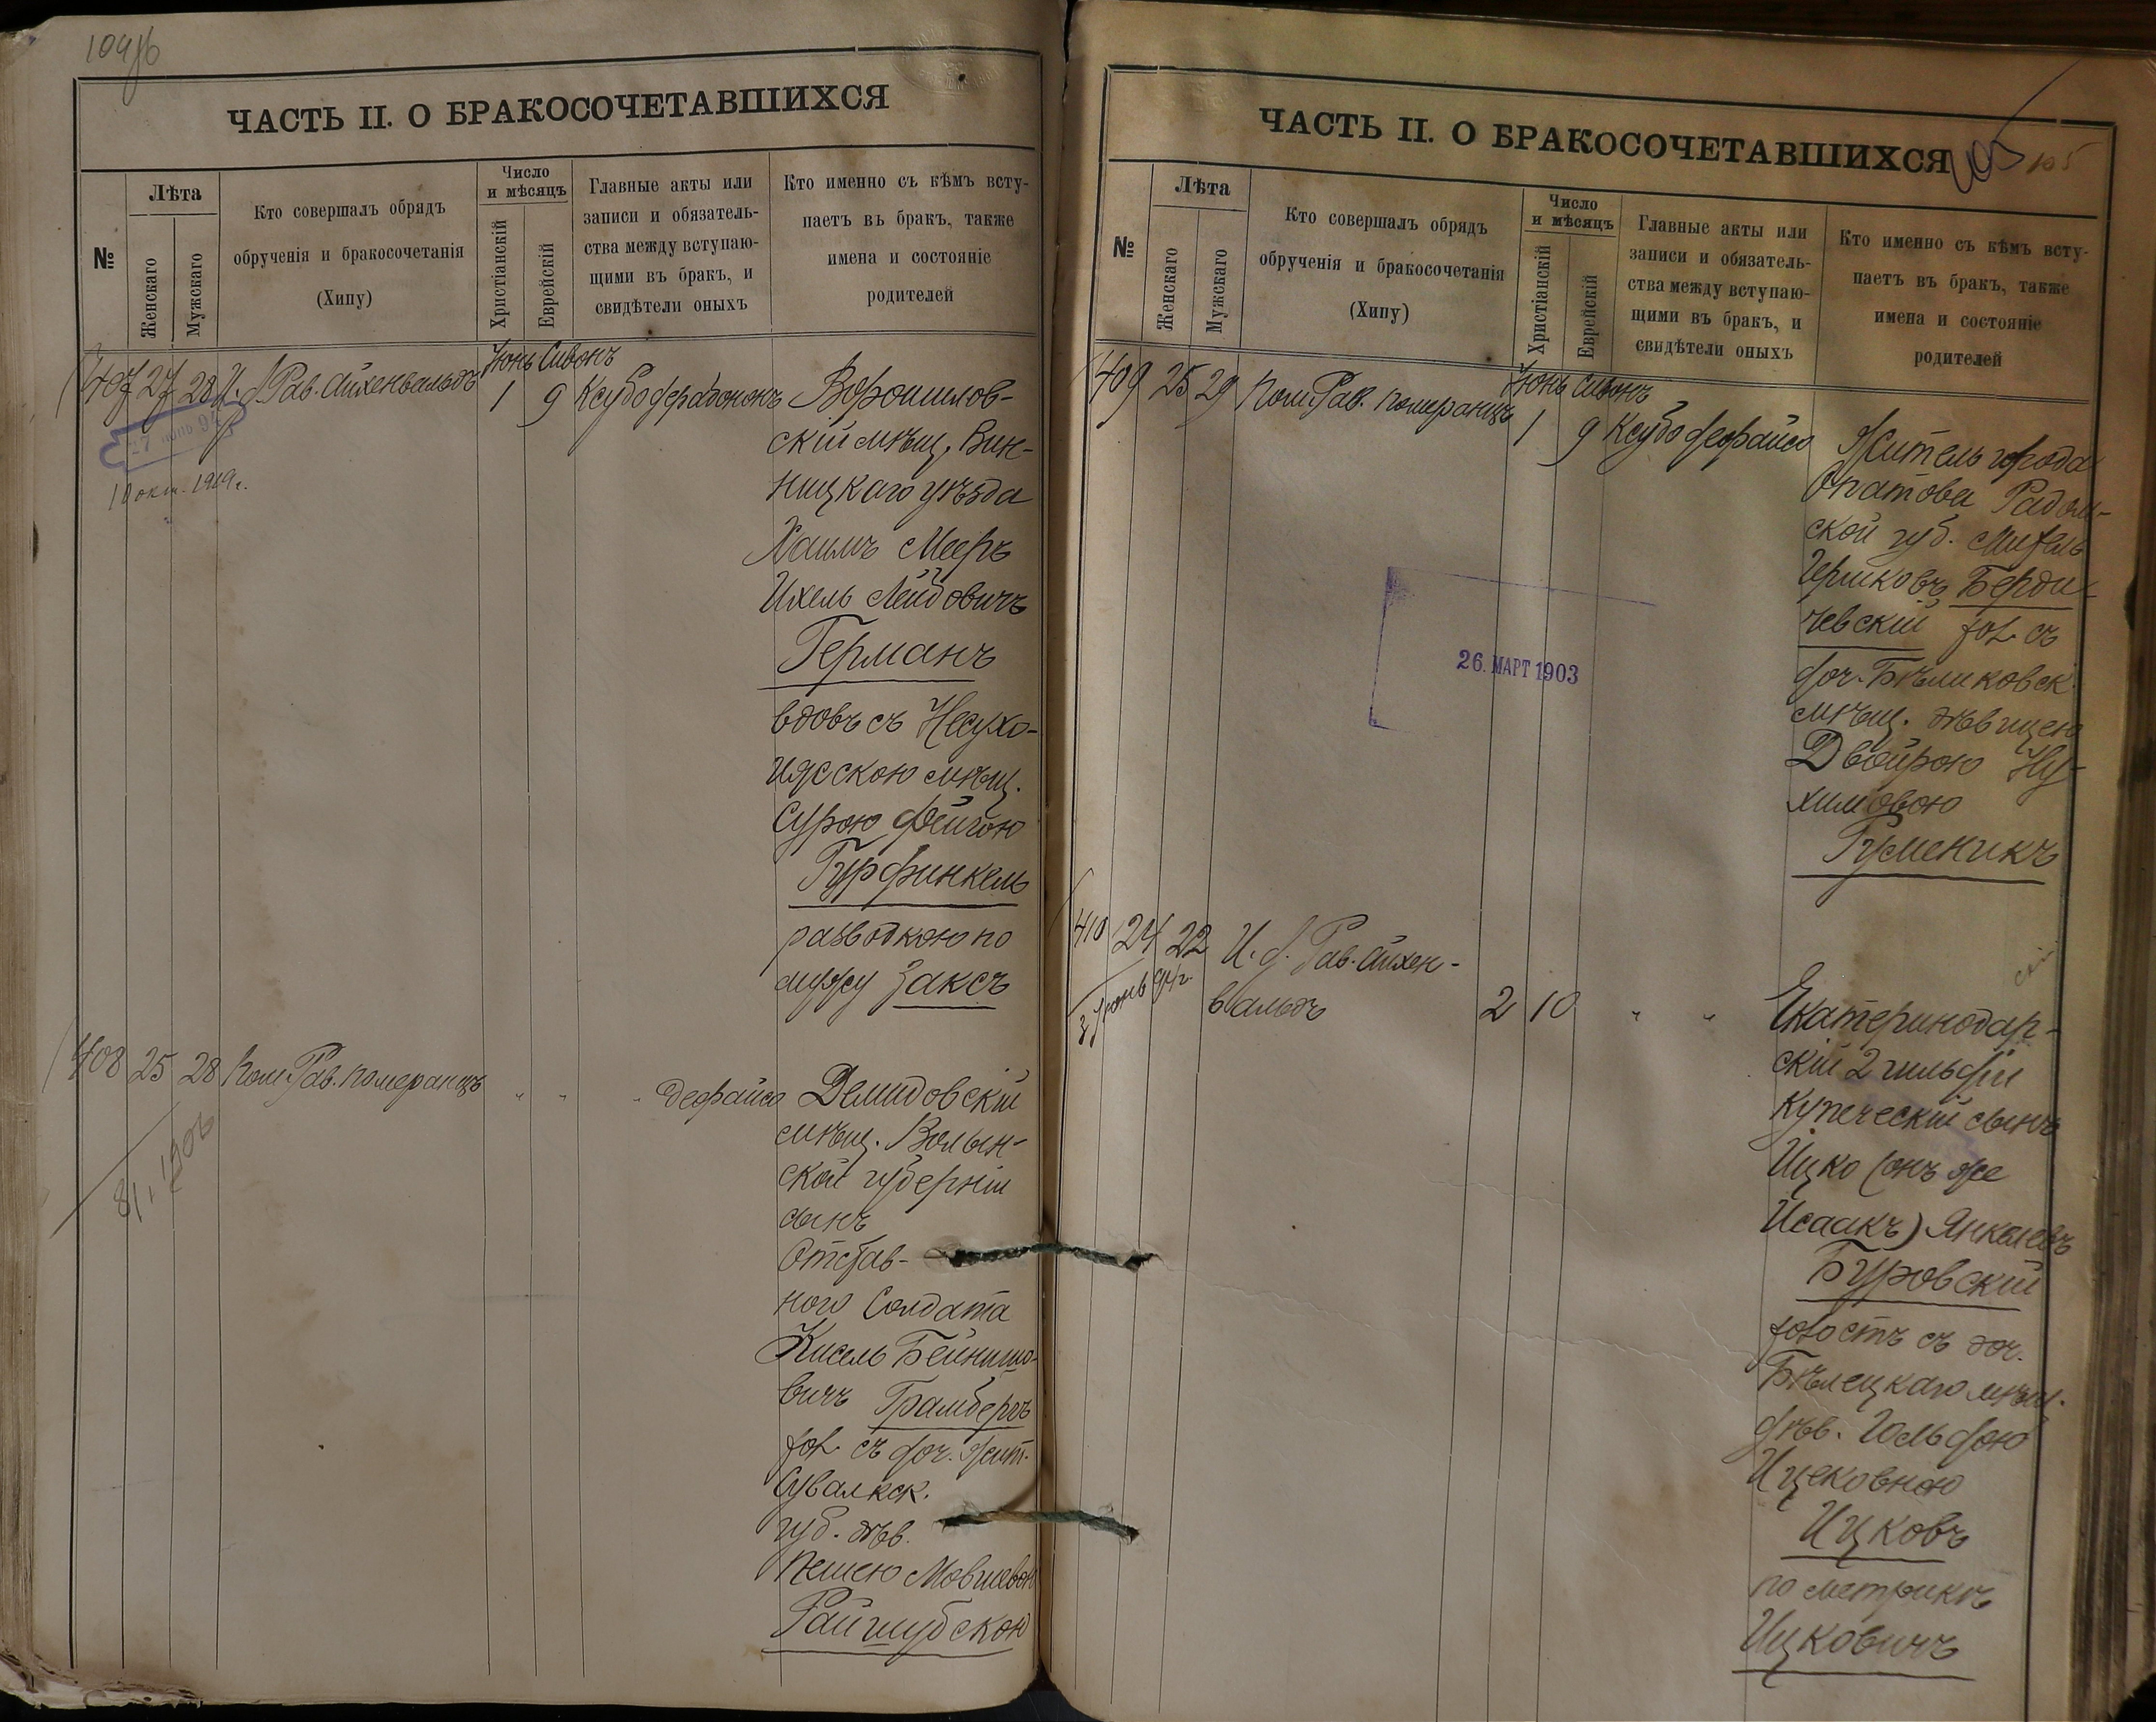 104/б
ЧАСТЬ II. О БРАКОСОЧЕТАВШИХСЯ
№
Лѣта
Женскаго
Мужскаго
Кто совершалъ обрядъ
обрученія и бракосочетанія
(Хипу)
Число
и мѣсяцъ
Христіанскій
Еврейскій
Главные акты или
записи и обязатель-
ства между вступаю-
щими въ бракъ, и
свидѣтели оныхъ
Кто именно съ кѣмъ всту-
паетъ въ бракъ, также
имена и состояніе
родителей
Іюнь Сивонъ
407 27 28 И. д. Рав. Айхенвальдъ 1 9 Ксубо дерабононъ Ворошилов-
скій мѣщ. Вин-
ницкаго уѣзда
Хаимъ Мееръ
Ихель Лейбовичъ
Германъ
вдовъ съ Несухо-
иясскою мѣщ.
Сурою Фейгою
Гурфинкель
разводкою по
мужу Заксъ
10 окт. 1919 г.
408 25 28 Пом. Рав. Померанцъ " " " деорайсо Демидовскій
мѣщ. Волын-
ской губерніи
сынъ
Отстав-
ного Солдата
Кисель Бейнишо-
вичъ Грамбергъ
хол. съ доч. жит.
Сувалкск.
губ. дѣв.
Пешею Мовшевой
Райшубскою
ЧАСТЬ II. О БРАКОСОЧЕТАВШИХСЯ
105
105
№
Лѣта
Женскаго
Мужскаго
Кто совершалъ обрядъ
обрученія и бракосочетанія
(Хипу)
Число
и мѣсяцъ
Христіанскій
Еврейскій
Главные акты или
записи и обязатель-
ства между вступаю-
щими въ бракъ, и
свидѣтели оныхъ
Кто именно съ кѣмъ всту-
паетъ въ бракъ, также
имена и состояніе
родителей
Іюнь Сивонъ
409 25 29 Пом. Рав. Померанцъ 1 9 Ксубо деорайсо Житель города
Опатова Радом-
ской губ. Михель
Гершковъ Берди-
чевскій хол. съ
доч. Бѣликовск.
мѣщ. дѣвицею
Двойрою Ну-
химовою
Гуменикъ
26. МАРТ 1903
410 24 22 И. д. Рав. Айхен-
вальдъ 2 10 " " Екатеринодар-
скій 2 гильдіи
купеческій сынъ
Ицко (онъ же
Исаакъ) Янкелевъ
Буровскій
холостъ съ доч.
Бѣлецкаго мѣщ.
дѣв. Гольдою
Ицековною
Ицковъ
по метрикѣ
Ицковичъ